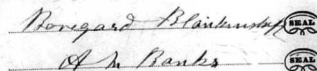 Boregard Blankinship SEAL
A M Banks SEAL